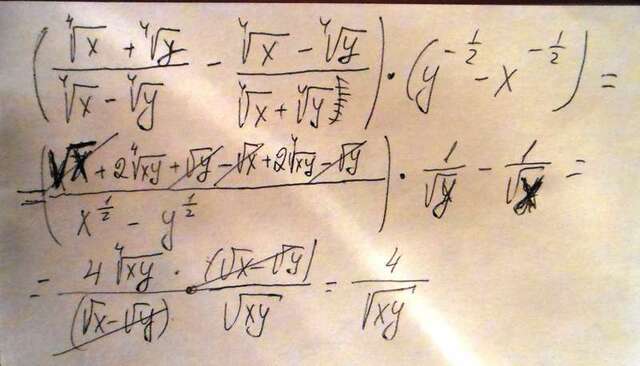 ( (⁴√x + ⁴√y) / (⁴√x − ⁴√y) − (⁴√x − ⁴√y) / (⁴√x + ⁴√y) ) · ( y^(−1/2) − x^(−1/2) ) =
= ( (√x + 2⁴√xy + √y − √x + 2⁴√xy − √y) / (x^(1/2) − y^(1/2)) ) · 1/√y − 1/√x =
= 4⁴√xy / (√x − √y) · (√x − √y) / √xy = 4 / √xy